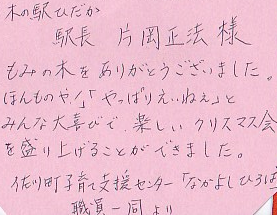 木の駅ひだか
駅長 片岡正法 様
もみの木をありがとうございました。
ほんものや!」「やっぱりえいねぇ」と
みんな大喜びで、楽しいクリスマス会
を盛り上げることができました。
佐川町子育て支援センター「なかよしひろば
職員一同より